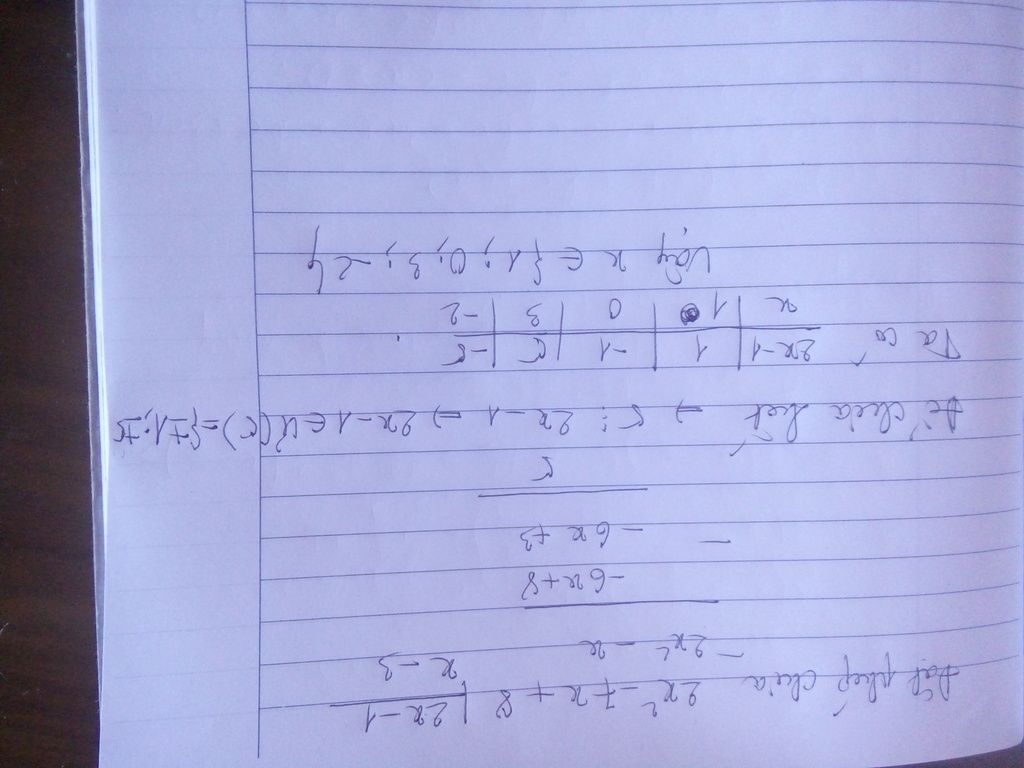 Đặt phép chia 2x² - 7x + 8 | 2x - 1
- 2x² - x x - 3
- 6x + 8
- - 6x + 3
5
Để chia hết → 5 ⋮ 2x - 1 → 2x - 1 ∈ Ư(5) = {±1; ±5
Ta có 2x-1 | 1 | -1 | 5 | -5
x | 1 | 0 | 3 | -2
Vậy x ∈ {1; 0; 3; -2}